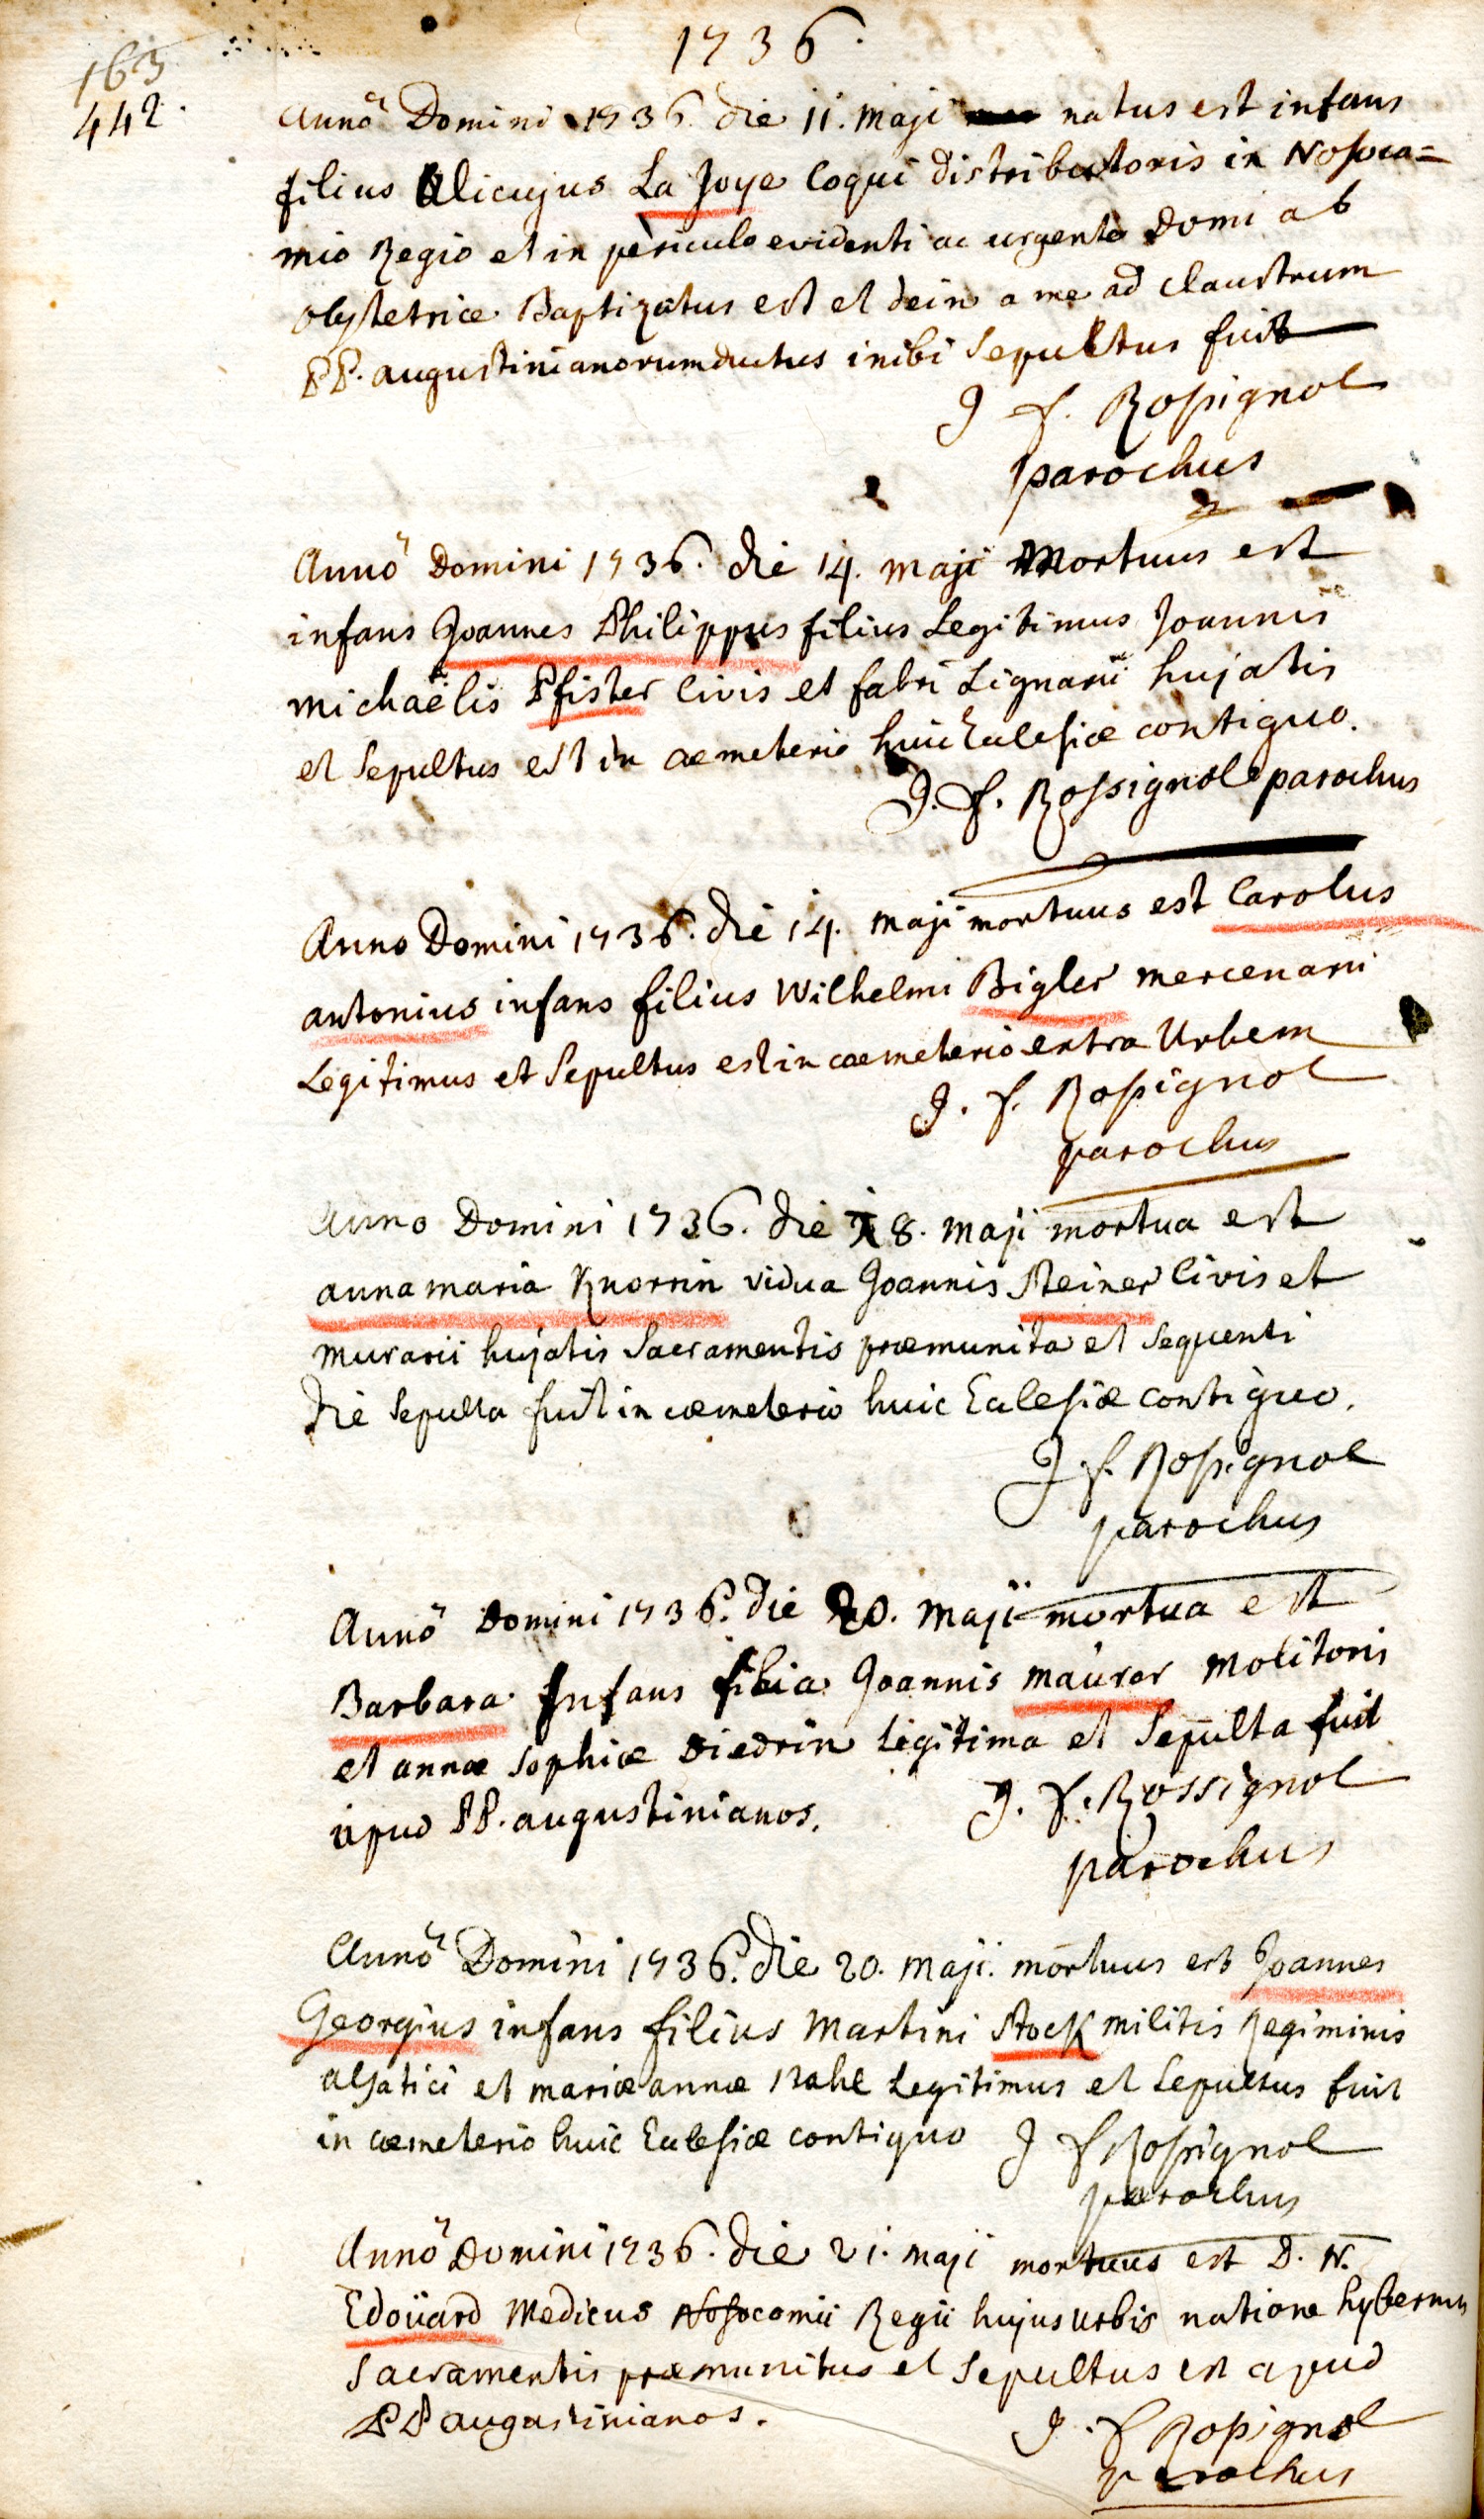 1736.
163
442.
Anno Domini 1736. die 11. Maji natus est infans
filius alicujus La Joye Coqui distributoris in Nosoco=
mio Regio et in periculo evidenti ac urgente Domi ab
obstetrice Baptizatus est et dein a me ad claustrum
PP. augustinianorum ductus inibi Sepultus fuit
J f. Rossignol
parochus
Anno Domini 1736. die 14. maji Mortuus est
infans Joannes Philippus filius Legitimus Joannis
michaëlis Pfister Civis et fabri Lignarii hujatis
et Sepultus est in cæmeterio huic Ecclesiæ contiguo.
J. f. Rossignol parochus
Anno Domini 1736. die 14. maji mortuus est Carolus
antonius infans filius Wilhelmi Bigler mercenarii
Legitimus et Sepultus est in cæmeterio extra Urbem
J. f. Rossignol
parochus
Anno Domini 1736. die 18. maji mortua est
anna maria Knorrin vidua Joannis Steiner Civis et
murarii hujatis Sacramentis præmunita et sequenti
die Sepulta fuit in cæmeterio huic Eclesiæ contiguo.
J f. Rossignol
parochus
Anno Domini 1736. die 20. maji mortua est
Barbara Infans filia Joannis maurer Molitoris
et annæ Sophiæ Diedrin Legitima et Sepulta fuit
apud PP. augustinianos.
J. f. Rossignol
parochus
Anno Domini 1736. die 20. maji. mortuus est Joannes
Georgius infans filius Martini Stock militis Regiminis
alsatici et mariæ annæ Nahl Legitimus et Sepultus fuit
in cæmeterio huic Eclesiæ contiguo
J f Rossignol
parochus
Anno Domini 1736. die 21. maji mortuus est D. N.
Edoüard Medicus Nosocomii Regii hujus urbis natione hybernus
Sacramentis præmunitus et Sepultus est apud
PP augustinianos.
J. f Rossignol
parochus